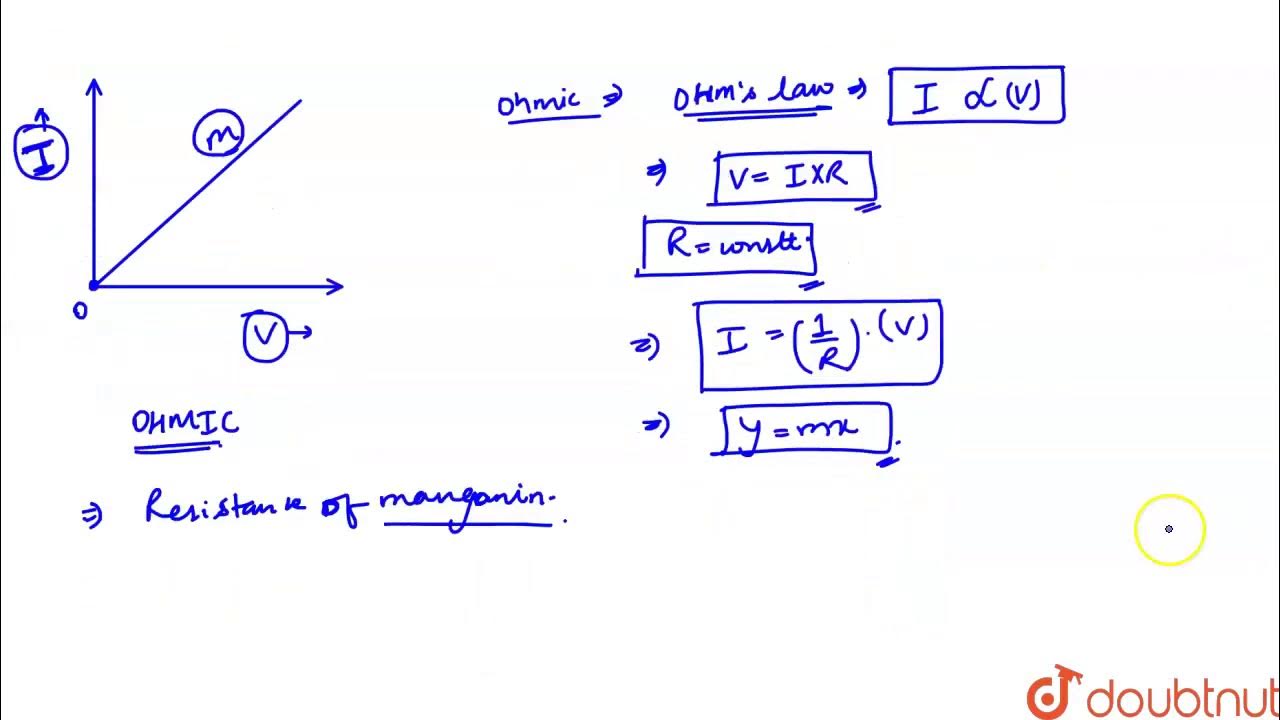 I
m
O
V
OHMIC
⇒ Resistance of manganin.
Ohmic ⇒ OHM's law ⇒ I ∝ (V)
⇒ V = I X R
R = constt.
⇒ I = (1/R) . (V)
⇒ y = mx.
doubtnut